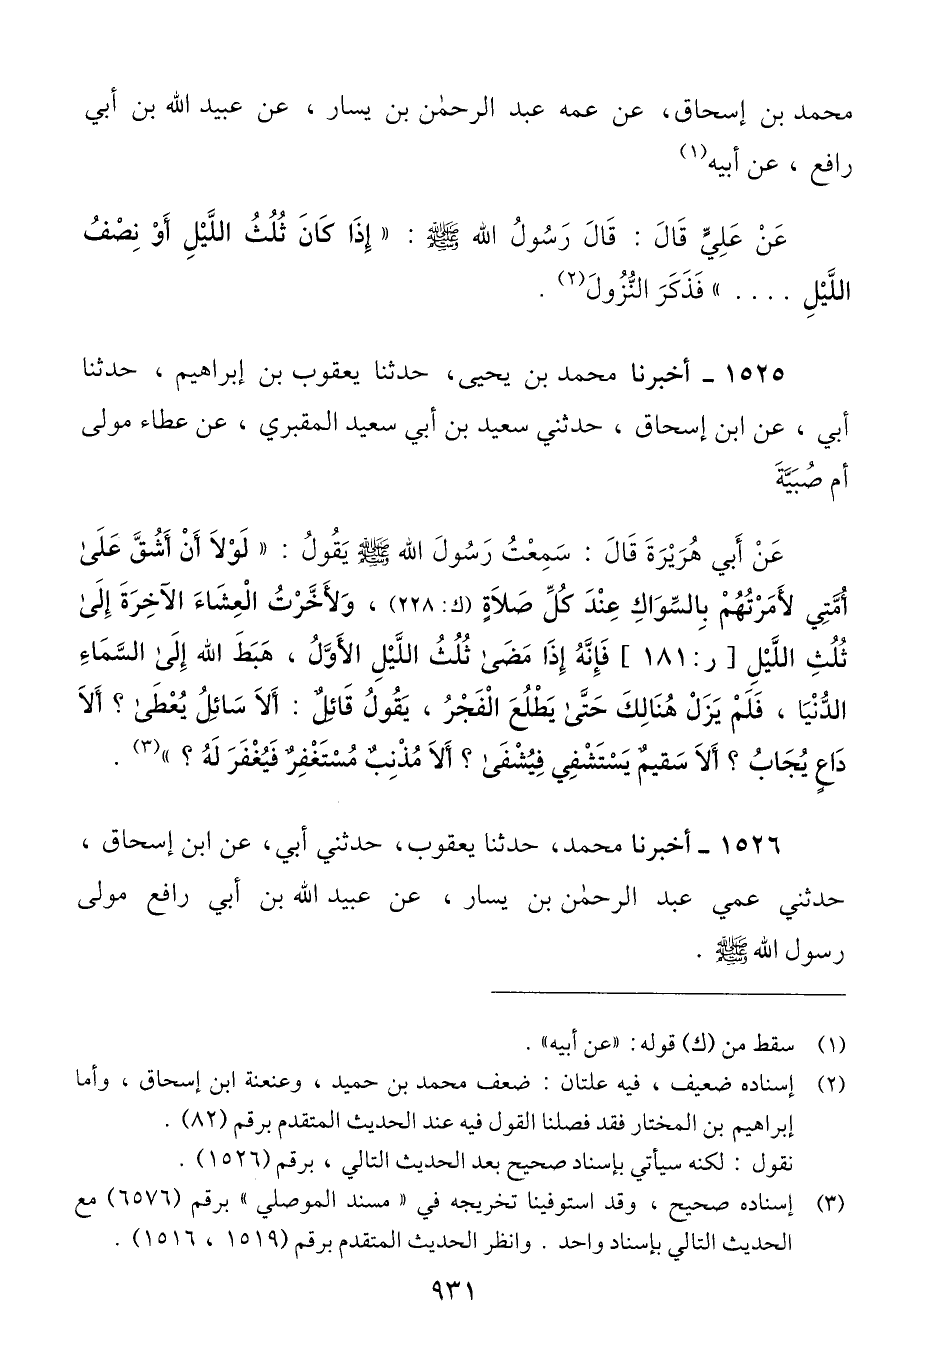 محمد بن إسحاق، عن عمه عبد الرحمٰن بن يسار ، عن عبيد الله بن أبي
رافع ، عن أبيه(١)
عَنْ عَلِيٍّ قَالَ : قَالَ رَسُولُ الله ﷺ : « إِذَا كَانَ ثُلُثُ اللَّيْلِ أَوْ نِصْفُ
اللَّيْلِ . . . . » فَذَكَرَ النُّزُولَ(٢) .
١٥٢٥ ـ أخبرنا محمد بن يحيى، حدثنا يعقوب بن إبراهيم ، حدثنا
أبي ، عن ابن إسحاق ، حدثني سعيد بن أبي سعيد المقبري ، عن عطاء مولى
أم صُبَيَّةَ
عَنْ أَبي هُرَيْرَةَ قَالَ : سَمِعْتُ رَسُولَ الله ﷺ يَقُولُ : « لَوْلاَ أَنْ أَشُقَّ عَلَىٰ
أُمَّتِي لأَمَرْتُهُمْ بِالسِّوَاكِ عِنْدَ كُلِّ صَلاَةٍ (ك: ٢٢٨) ، وَلأَخَّرْتُ الْعِشَاءَ الآخِرَةَ إِلَىٰ
ثُلُثِ اللَّيْلِ [ ر: ١٨١ ] فَإِنَّهُ إِذَا مَضَىٰ ثُلُثُ اللَّيْلِ الأَوَّلُ ، هَبَطَ الله إِلَىٰ السَّمَاءِ
الدُّنْيَا ، فَلَمْ يَزَلْ هُنَالِكَ حَتَّىٰ يَطْلُعَ الْفَجْرُ ، يَقُولُ قَائِلٌ : أَلاَ سَائِلٌ يُعْطَىٰ ؟ أَلاَ
دَاعٍ يُجَابُ ؟ أَلاَ سَقِيمٌ يَسْتَشْفِي فَيُشْفَىٰ ؟ أَلاَ مُذْنِبٌ مُسْتَغْفِرٌ فَيُغْفَرَ لَهُ ؟ »(٣) .
١٥٢٦ ـ أخبرنا محمد، حدثنا يعقوب، حدثني أبي، عن ابن إسحاق ،
حدثني عمي عبد الرحمٰن بن يسار ، عن عبيد الله بن أبي رافع مولى
رسول الله ﷺ .
(١) سقط من (ك) قوله: «عن أبيه» .
(٢) إسناده ضعيف ، فيه علتان : ضعف محمد بن حميد ، وعنعنة ابن إسحاق ، وأما
إبراهيم بن المختار فقد فصلنا القول فيه عند الحديث المتقدم برقم (٨٢) .
نقول : لكنه سيأتي بإسناد صحيح بعد الحديث التالي ، برقم (١٥٢٦) .
(٣) إسناده صحيح ، وقد استوفينا تخريجه في « مسند الموصلي » برقم (٦٥٧٦) مع
الحديث التالي بإسناد واحد . وانظر الحديث المتقدم برقم (١٥١٩ ، ١٥١٦) .
٩٣١